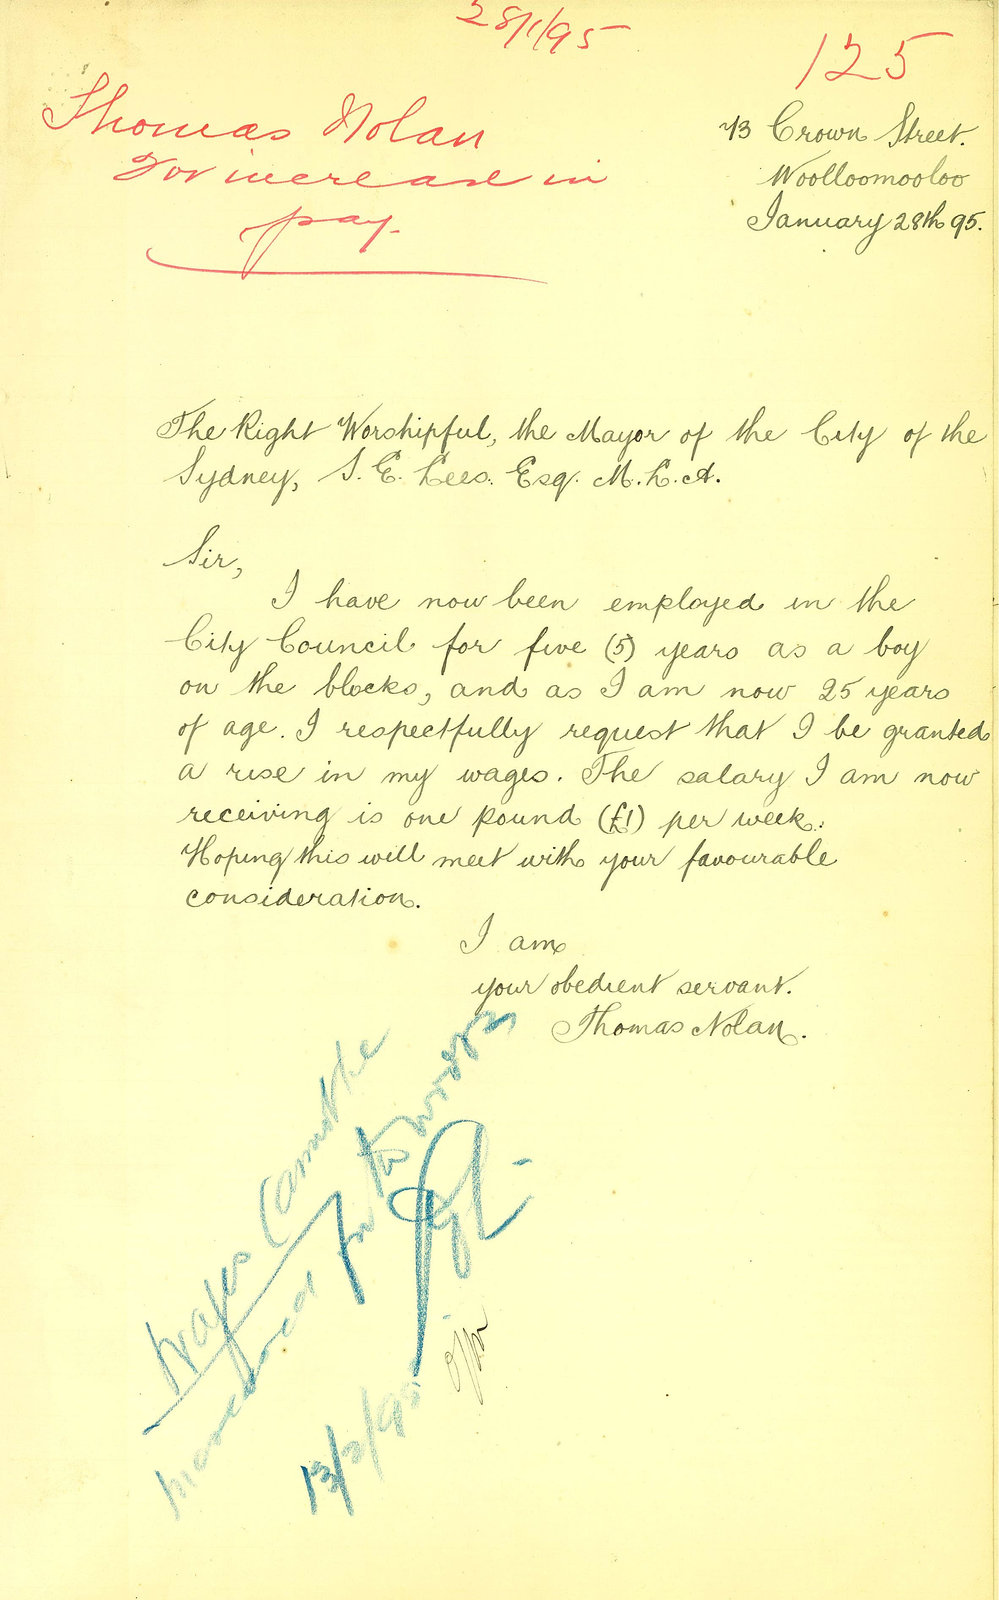 28/1/95
125
Thomas Nolan
For increase in
pay.
73 Crown Street.
Woolloomooloo
January 28th 95.
The Right Worshipful, the Mayor of the City of the
Sydney, S. E. Lees. Esq. M.L.A.
Sir,
I have now been employed in the
City Council for five (5) years as a boy
on the blocks, and as I am now 25 years
of age. I respectfully request that I be granted
a rise in my wages. The salary I am now
receiving is one pound (£1) per week.
Hoping this will meet with your favourable
consideration.
I am
your obedient servant.
Thomas Nolan.
Wages
13/2/95